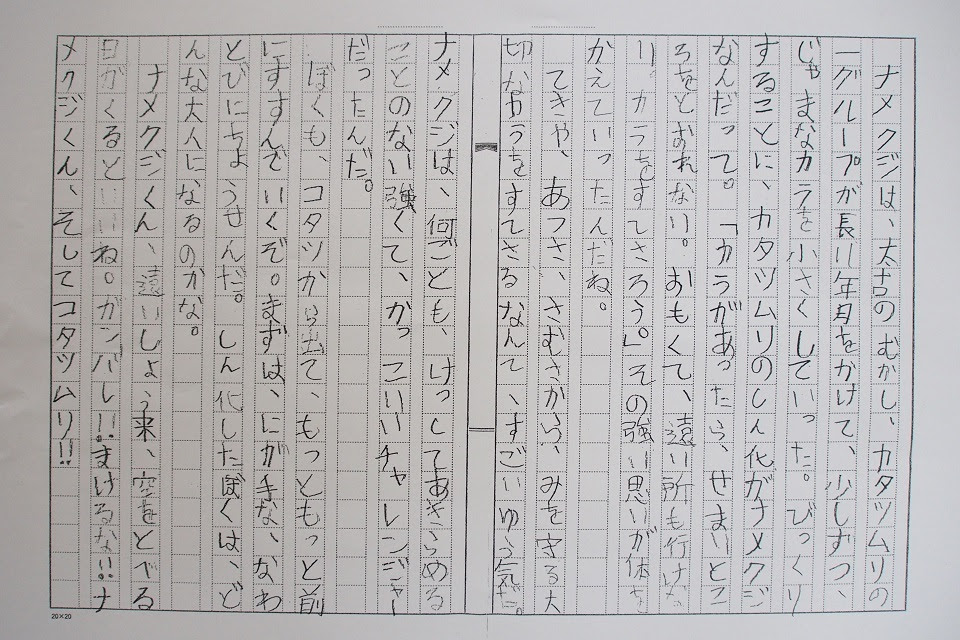 ナメクジは、太古のむかし、カタツムリの
一グループが長い年月をかけて、少しずつ、
じゃまなカラを小さくしていった。びっくり
することに、カタツムリのしん化がナメクジ
なんだって。「カラがあったら、せまいとこ
ろをとおれない。おもくて、遠い所も行けな
い。カラをすてさろう。」その強い思いが体を
かえていったんだね。
てきや、あつさ、さむさから、みを守る大
切なカラをすてさるなんて、すごいゆう気だ。
ナメクジは、何ごとも、けっしてあきらめる
ことのない強くて、かっこいいチャレンジャー
だったんだ。
ぼくも、コタツから出て、もっともっと前
にすすんでいくぞ。まずは、にが手な、なわ
とびにちょうせんだ。しん化したぼくは、ど
んな大人になるのかな。
ナメクジくん、遠いしょう来、空をとべる
日がくるといいね。ガンバレ!!まけるな!!ナ
メクジくん、そしてコタツムリ!!
20×20